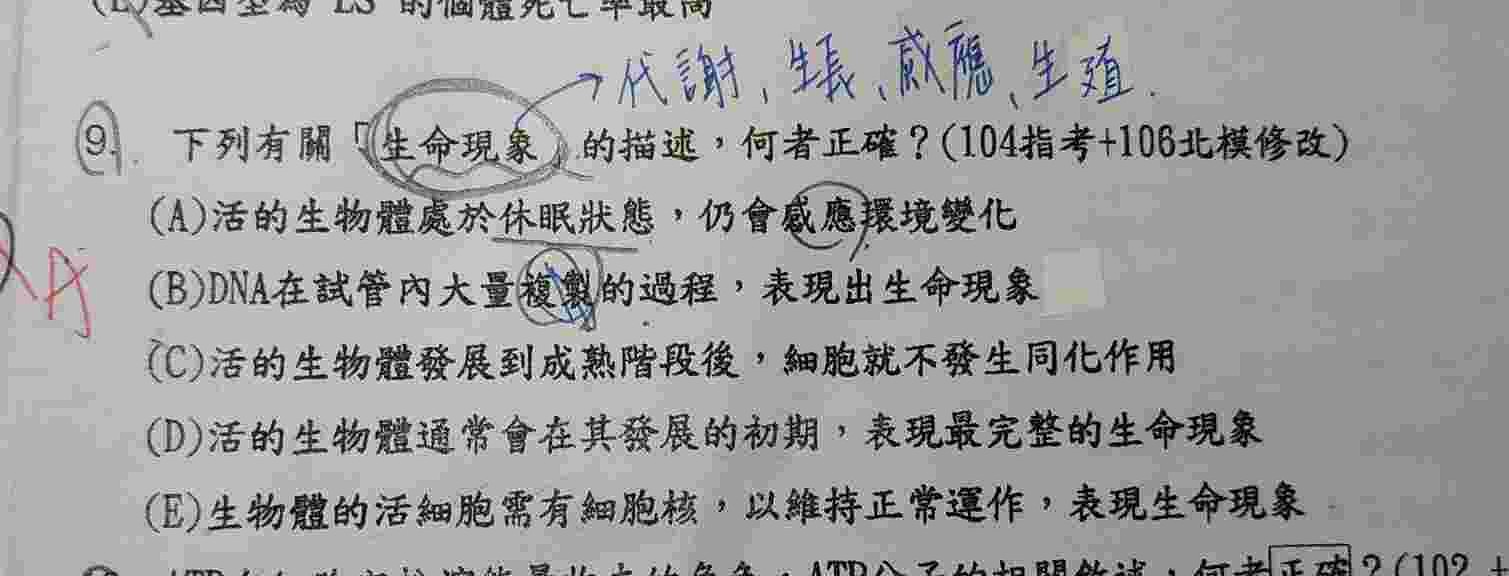 (E)基因型為 LS 的個體死亡率最高
代謝、生長、感應、生殖.
9. 下列有關「生命現象」的描述,何者正確?(104指考+106北模修改)
(A)活的生物體處於休眠狀態,仍會感應環境變化
(B)DNA在試管內大量複製的過程,表現出生命現象
A
(C)活的生物體發展到成熟階段後,細胞就不發生同化作用
(D)活的生物體通常會在其發展的初期,表現最完整的生命現象
(E)生物體的活細胞需有細胞核,以維持正常運作,表現生命現象
ATP分子的相關敘述,何者正確?(102 +